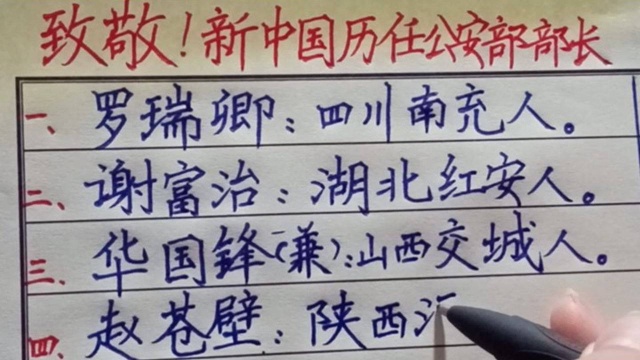 致敬！新中国历任公安部部长
一、罗瑞卿：四川南充人。
二、谢富治：湖北红安人。
三、华国锋(兼)：山西交城人。
四、赵苍壁：陕西